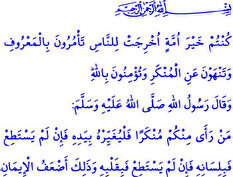 بِسْمِ اللهِ الرَّحْمٰنِ الرَّحِيمِ
كُنْتُمْ خَيْرَ اُمَّةٍ اُخْرِجَتْ لِلنَّاسِ تَأْمُرُونَ بِالْمَعْرُوفِ
وَتَنْهَوْنَ عَنِ الْمُنْكَرِ وَتُؤْمِنُونَ بِاللهِ
وَقَالَ رَسُولُ اللهِ صَلَّى اللهُ عَلَيْهِ وَسَلَّمَ:
مَنْ رَأَى مِنْكُمْ مُنْكَرًا فَلْيُغَيِّرْهُ بِيَدِهِ فَإِنْ لَمْ يَسْتَطِعْ
فَبِلِسَانِهِ فَإِنْ لَمْ يَسْتَطِعْ فَبِقَلْبِهِ وَذَلِكَ أَضْعَفُ الْإِيمَانِ.